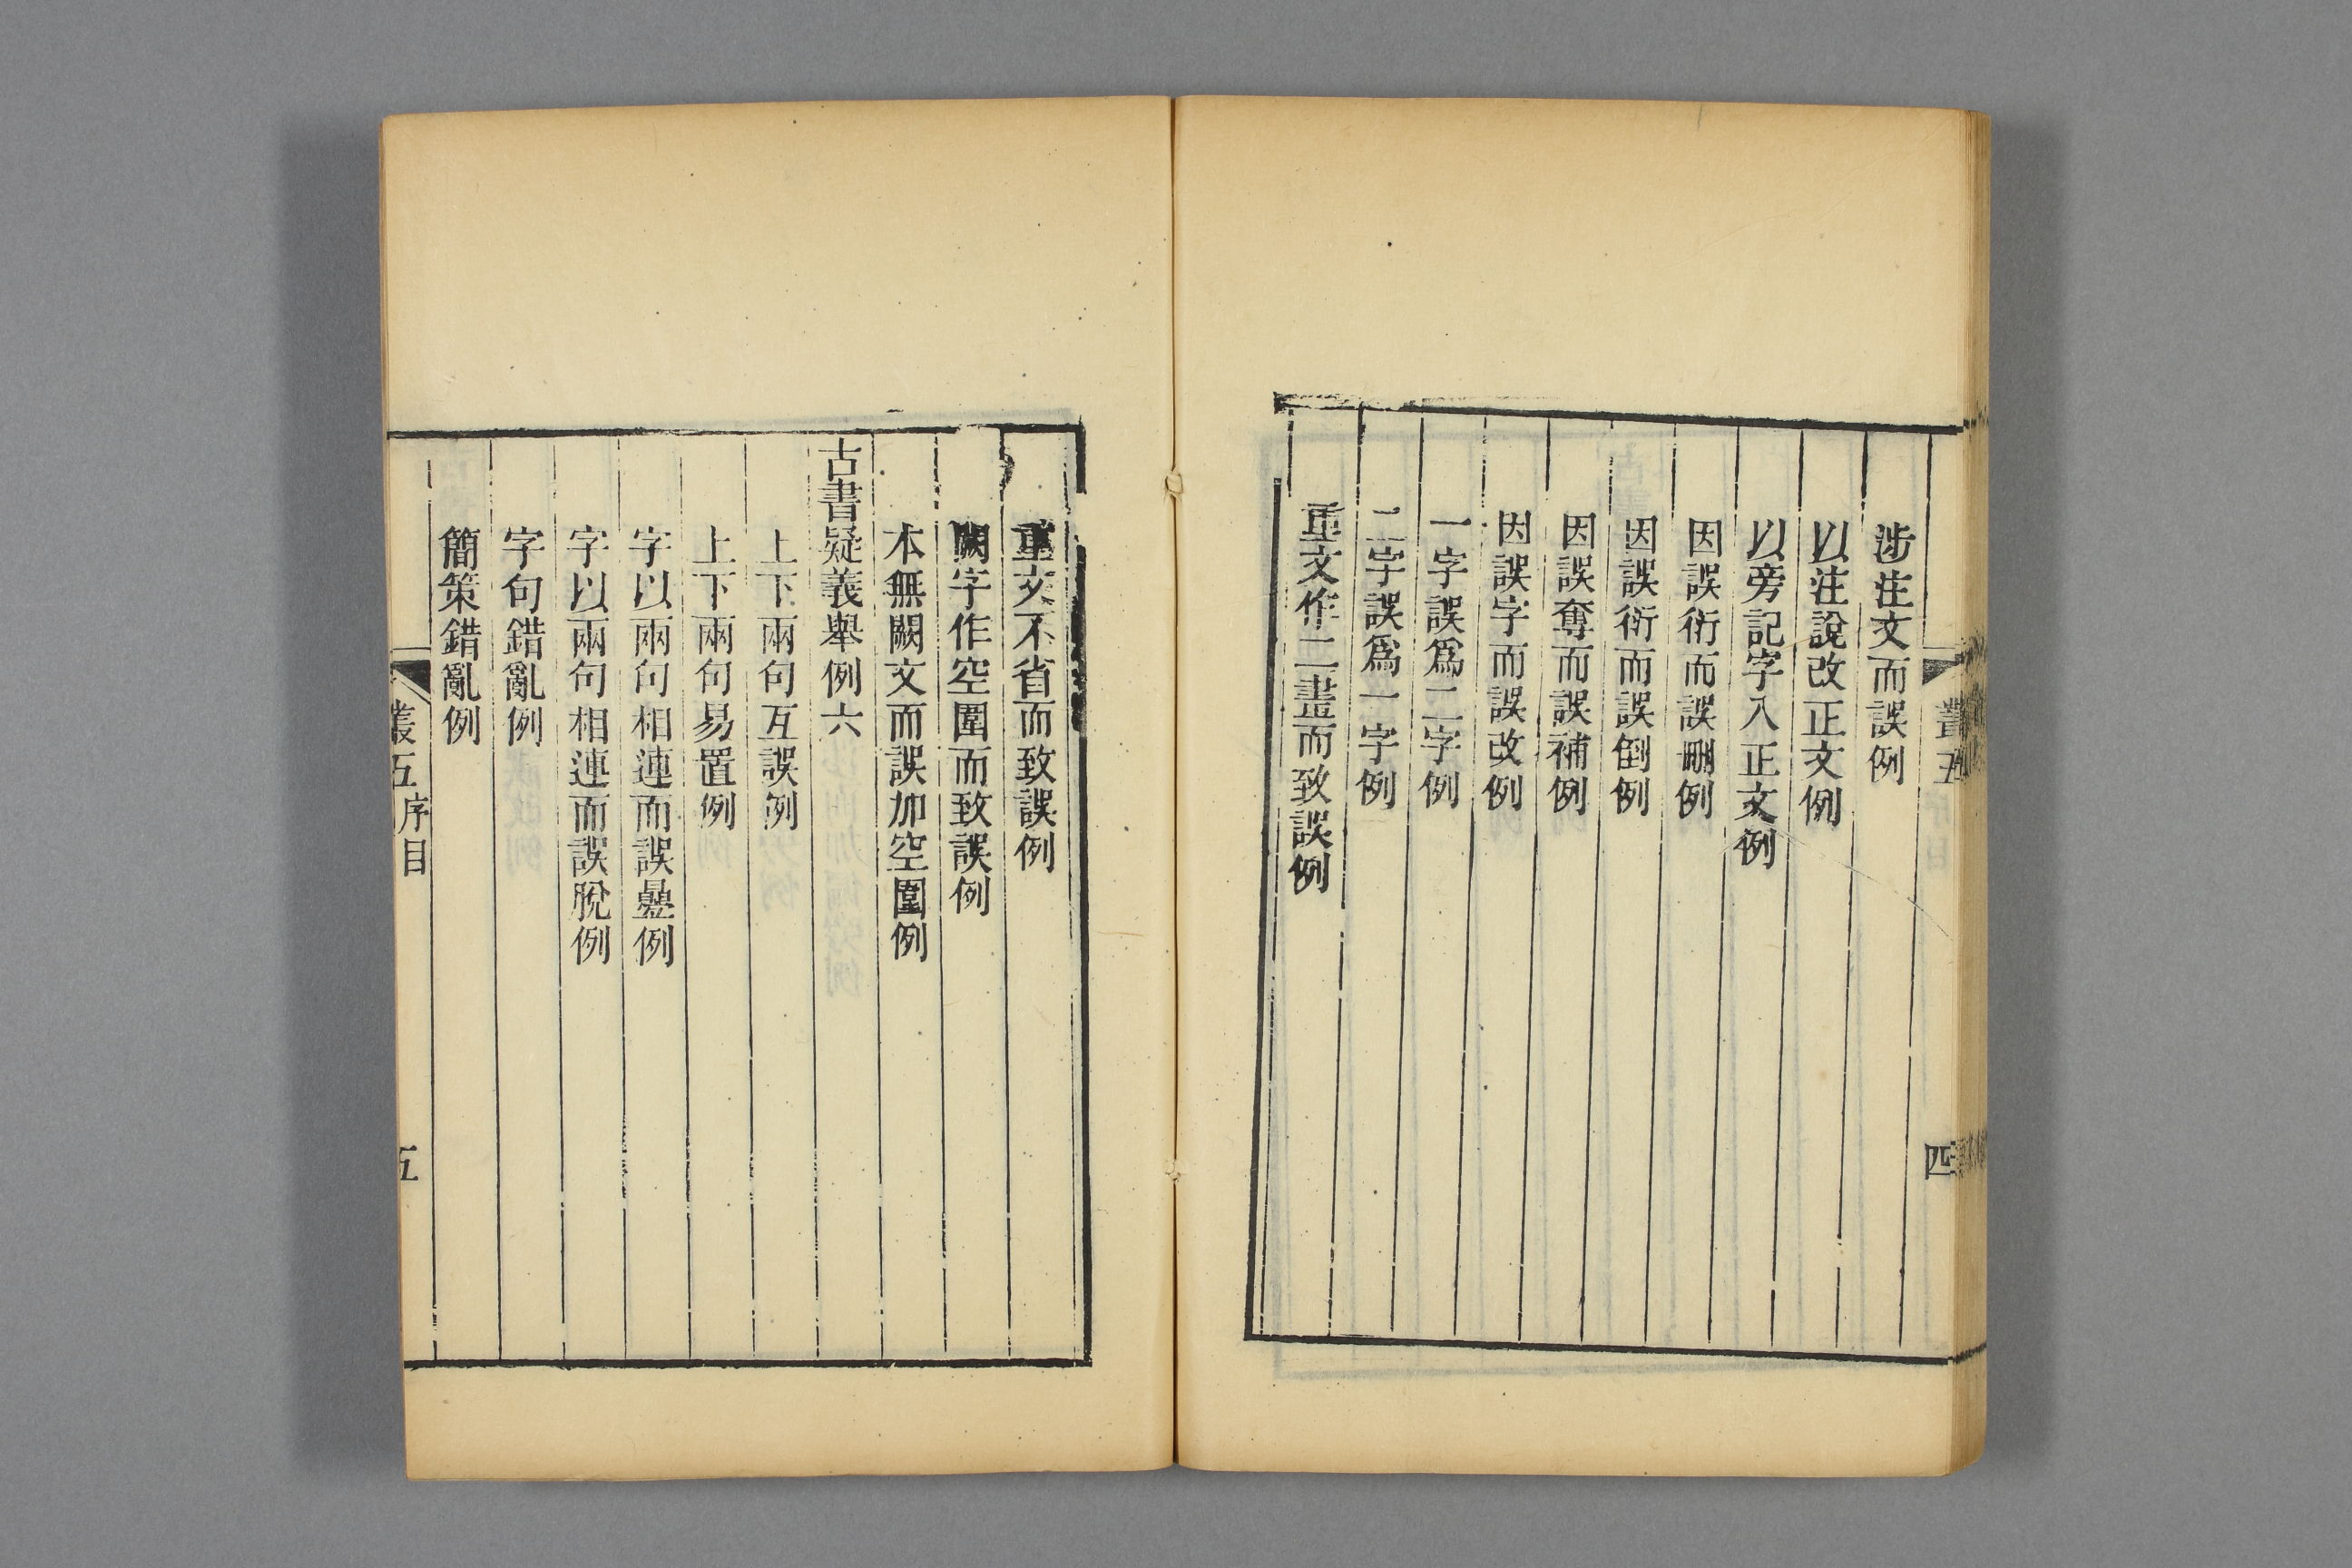 涉注文而誤例
以注說改正文例
以旁記字入正文例
因誤衍而誤刪例
因誤衍而誤倒例
因誤奪而誤補例
因誤字而誤改例
一字誤爲二字例
二字誤爲一字例
重文作二畫而致誤例
四
重文不省而致誤例
闕字作空圍而致誤例
本無闕文而誤加空圍例
古書疑義舉例六
上下兩句互誤例
上下兩句易置例
字以兩句相連而誤疊例
字以兩句相連而誤脫例
字句錯亂例
簡策錯亂例
叢五序目
五